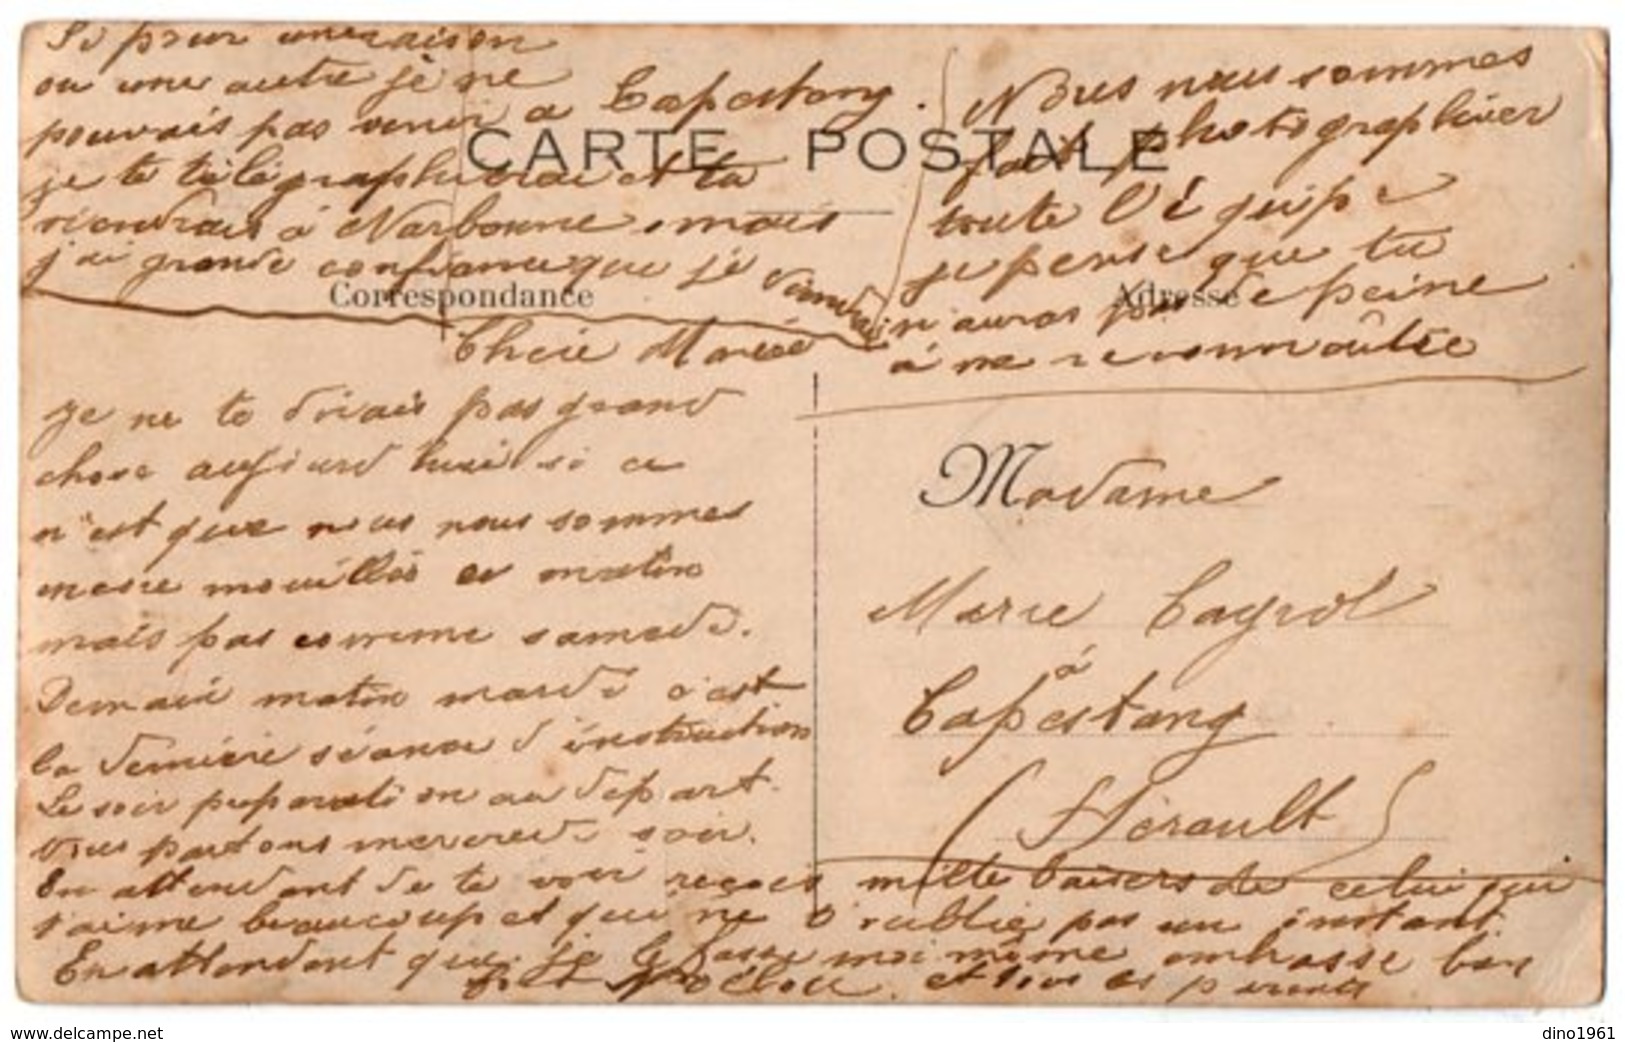 Si pour une raison
ou une autre je ne
pouvais pas venir a Capestang.
je te télégraphierai et tu
viendrais à Narbonne, mais
j'ai grande confiance que je viendrai
Nous nous sommes
fait photographier
toute l'équipe
je pense que tu
n'auras pas de peine
à me reconnaître
CARTE POSTALE
Correspondance
Adresse
Chère Marie
Je ne te dirais pas grand
chose aujourd'hui si ce
n'est que nous nous sommes
encore mouillés ce matin
mais pas comme samedi.
Demain matin mardi c'est
la dernière séance d'instruction
Le soir preparation au départ.
Nous partons mercredi soir.
En attendant de te voir reçois mille baisers de celui qui
t'aime beaucoup et qui ne t'oublie pas un instant.
En attendant que je le fasse moi même embrasse bien
et tous les parents
Madame
Marie Cayrol
à
Capestang
(Hérault)
dino1961
www.delcampe.net